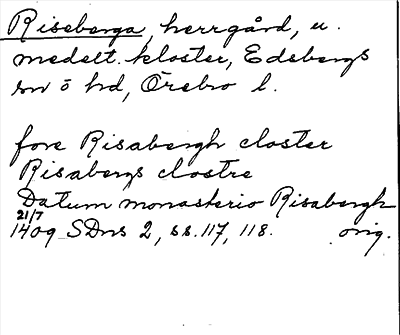 Riseberga, herrgård, u.
medelt. kloster, Edsbergs
sn o hd, Örebro l.
fore Risabergh closter
Risabergs clostre
Datum monasterio Risabergh
21/7
1409 SDns 2, ss. 117, 118. orig.